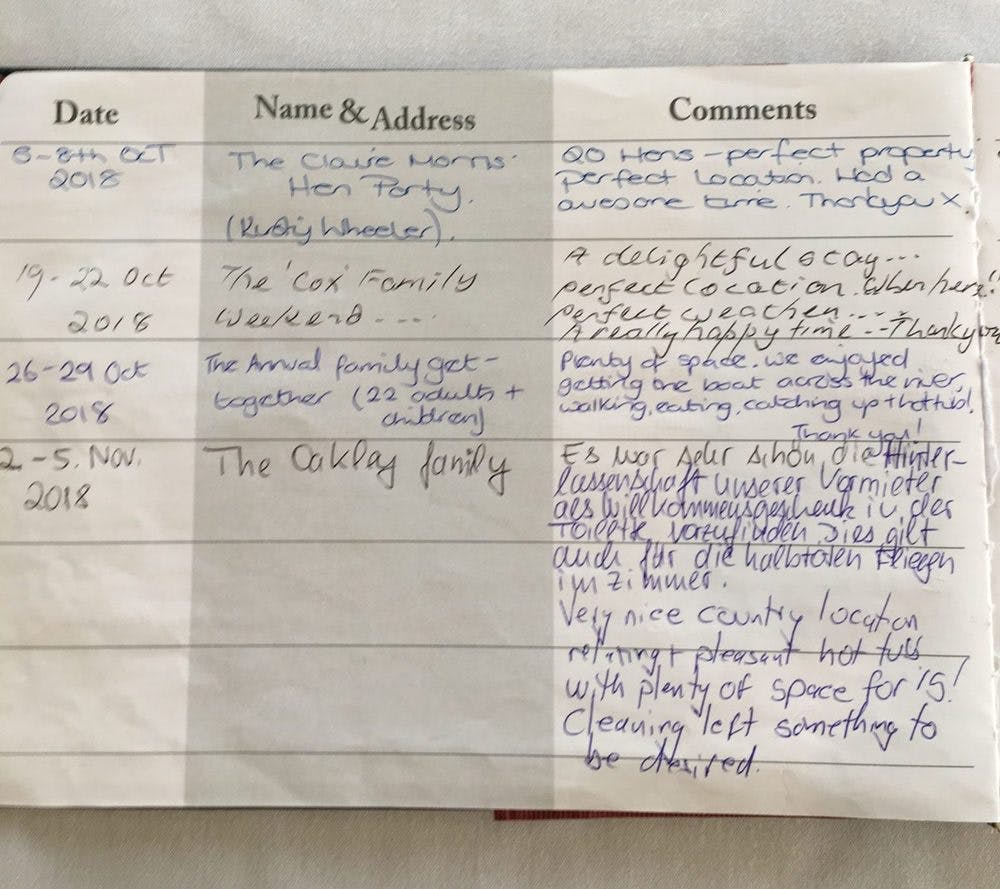 Date
Name & Address
Comments
6-8th OCT
2018
The Claire Morris
Hen Party.
(Kirsty Wheeler).
20 Hens - perfect property
perfect Location. Had a
awesome time. Thankyou X
19-22 Oct
2018
The 'Cox' Family
Weekend ....
A delightful stay...
perfect location. When here!
perfect weather...
A really happy time -- Thankyou
26-29 Oct
2018
The Annual family get-
together (22 adults +
children)
Plenty of space. we enjoyed
getting the boat across the river,
walking, eating, catching up + hot tub!
Thank you!
2-5. Nov.
2018
The Oakley family
Es war sehr schön, die Hinter-
lassenschaft unserer Vermieter
als Willkommensgeschenk in der
Toilette vorzufinden. Dies gilt
auch für die halbtoten Fliegen
im Zimmer.
Very nice country location
pleasant hot tub
with plenty of space for 15!
Cleaning left something to
be desired.